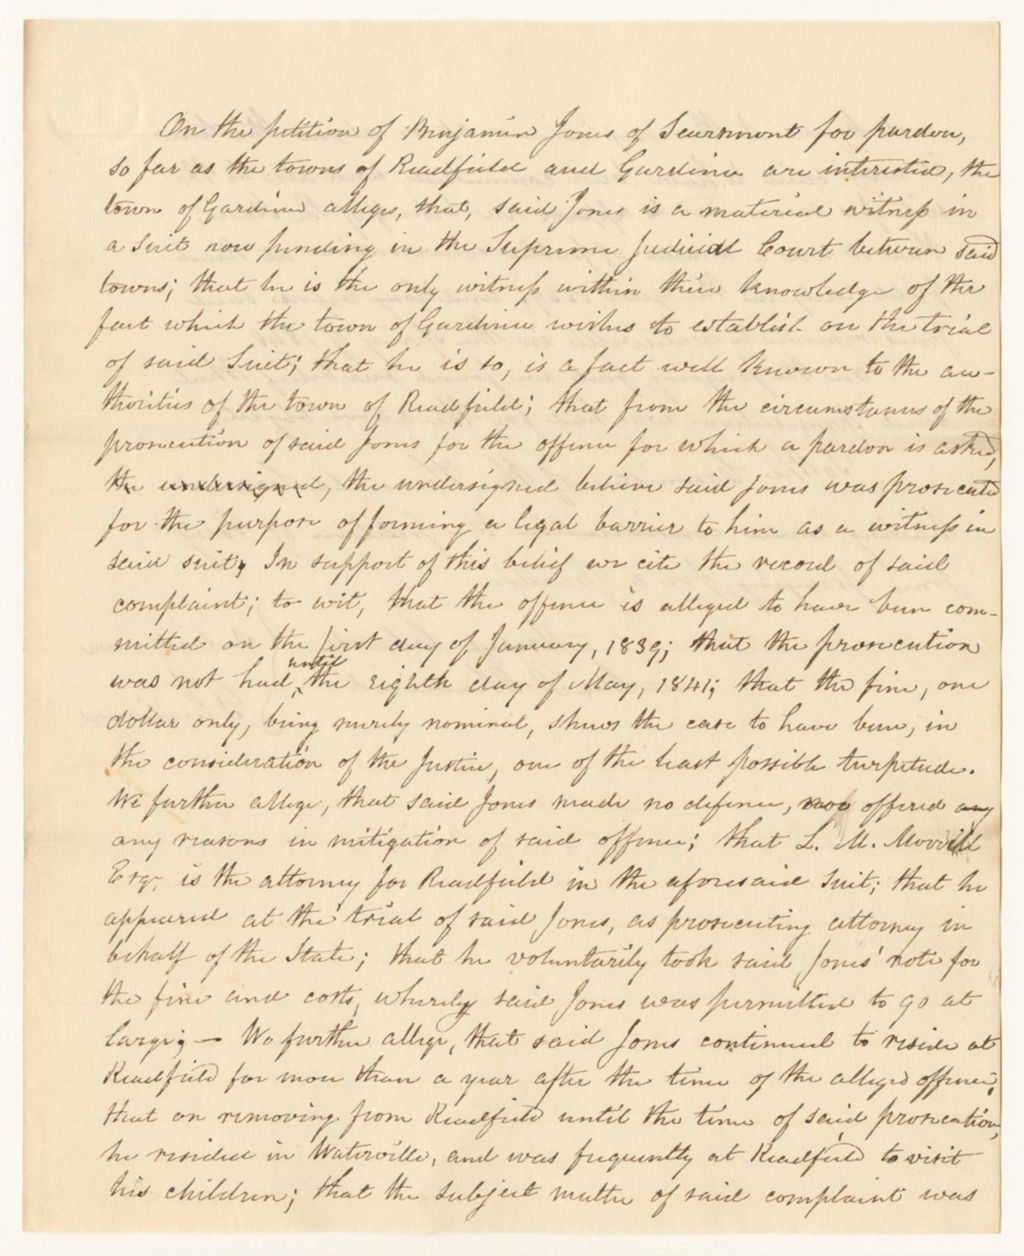 On the petition of Benjamin Jones of Searsmont for pardon,
so far as the towns of Readfield and Gardiner are interested, the
town of Gardiner alleges, that, said Jones is a material witness in
a suit now pending in the Supreme Judicial Court between said
towns; that he is the only witness within their knowledge of the
fact which the town of Gardiner wishes to establish on the trial
of said suit; that he is so, is a fact well known to the au-
thorities of the town of Readfield; that from the circumstances of the
prosecution of said Jones for the offence for which a pardon is asked,
the undersigned, the undersigned believe said Jones was prosecuted
for the purpose of forming a legal barrier to him as a witness in
said suit, In support of this belief we cite the record of said
complaint; to wit, that the offence is alleged to have been com-
mitted on the first day of January, 1839; that the prosecution
was not had, until the eighth day of May, 1841; that the fine, one
dollar only, being merely nominal, shews the case to have been, in
the consideration of the Justice, one of the least possible turpitude.
We further allege, that said Jones made no defence, nor offered any
any reasons in mitigation of said offence; that L. M. Morrill
Esqr. is the attorney for Readfield in the aforesaid suit; that he
appeared at the trial of said Jones, as prosecuting attorney in
behalf of the State; that he voluntarily took said Jones' note for
the fine and costs, whereby said Jones was permitted to go at
large; — We further allege, that said Jones continued to reside at
Readfield for more than a year after the time of the alleged offence;
that on removing from Readfield until the time of said prosecution,
he resided in Waterville, and was frequently at Readfield to visit
his children; that the subject matter of said complaint was